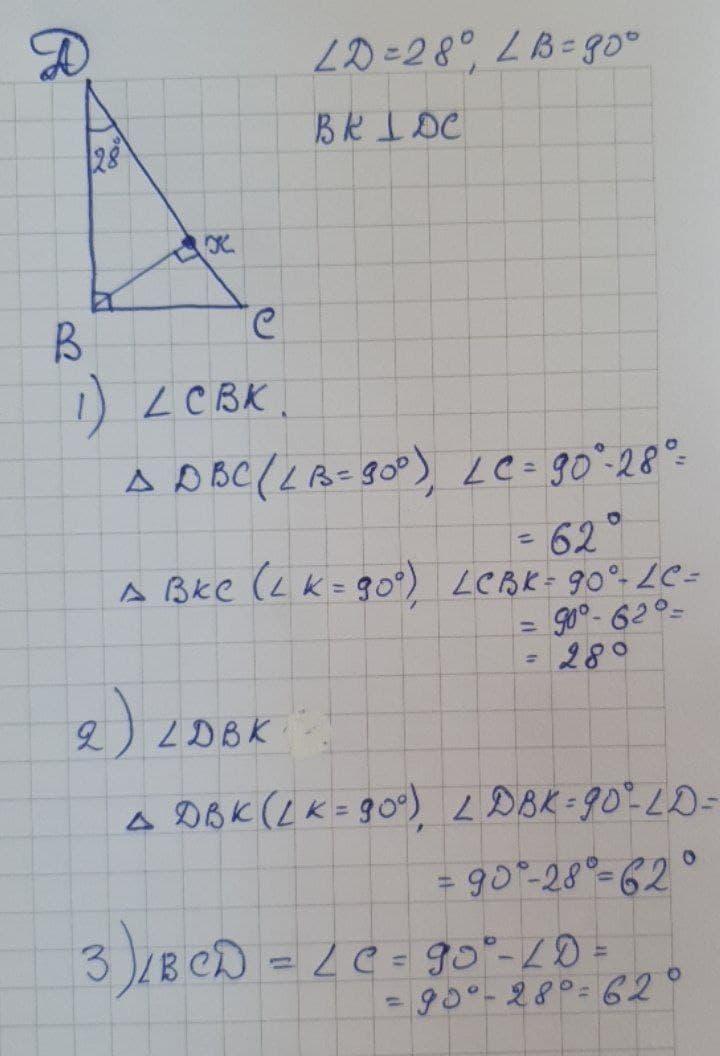 D
∠D = 28°, ∠B = 90°
BK ⊥ DC
28°
K
B
C
1) ∠CBK.
△ DBC (∠B = 90°), ∠C = 90° - 28° =
= 62°
△ BKC (∠K = 90°), ∠CBK = 90° - ∠C =
= 90° - 62° =
= 28°
2) ∠DBK
△ DBK (∠K = 90°), ∠DBK = 90° - ∠D =
= 90° - 28° = 62°
3) ∠BCD = ∠C = 90° - ∠D =
= 90° - 28° = 62°